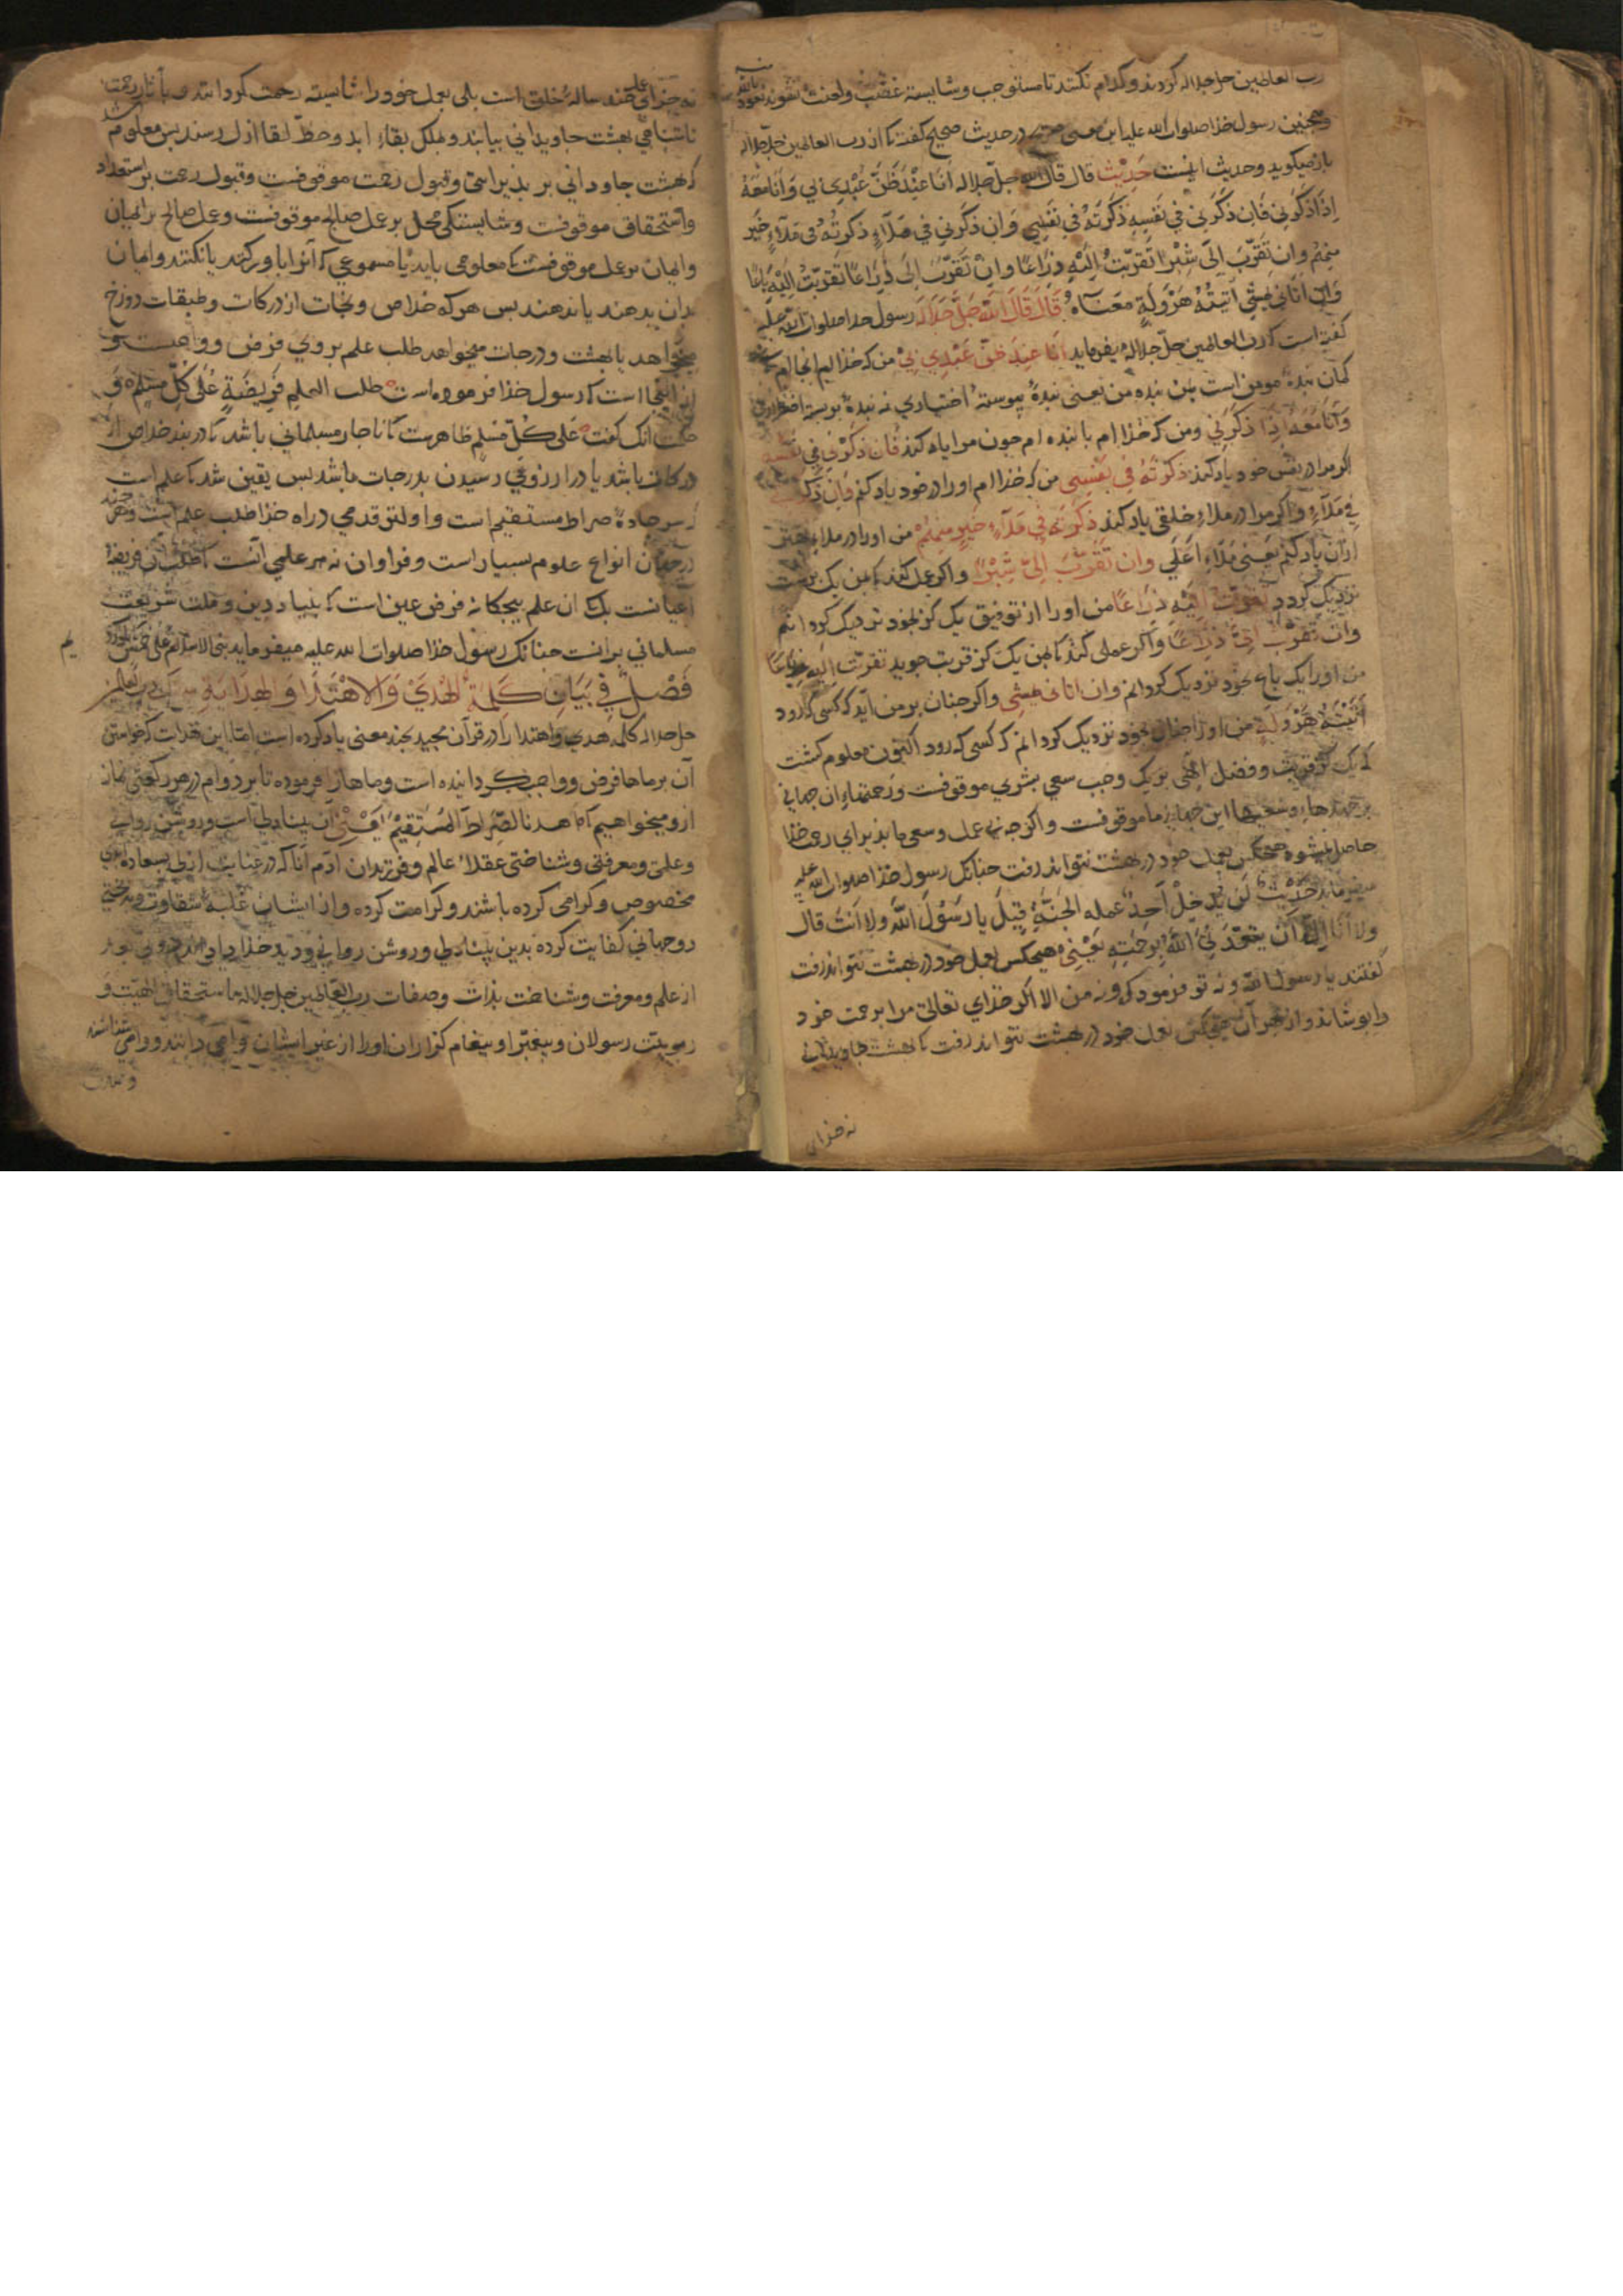 رب العالمین جل جلاله کردند و کدام نکنند تا مستوجب و شایسته غضب و لعنت نشوند نعوذ بالله منه
و همچنین رسول خذا صلوات الله علیه این معنی در حدیث صحیح کفته کا از رب العالمین جل جلاله
باز میکوید و حدیث اینست حَدِیْث قال قال الله جل جلاله اَنَا عِنْدَ ظَنِّ عَبْدِی بی وَ اَنَا مَعَهُ
اِذَا ذَکَرَنی فَاِن ذَکَرَنی فی نَفسِهِ ذَکَرتُهُ فی نَفسِی وَ اِن ذَکَرَنی فی مَلَاءٍ ذَکَرتُهُ فی مَلَاءٍ خَیر
مِنهُم وان تَقَرَّبَ الیَّ شِبْرًا تَقَرَّبْتُ اِلَیْهِ ذِرَاعًا وَاِنْ تَقَرَّبَ اِلَیَّ ذِرَاعًا تَقَرَّبْتُ اِلَیْهِ بَاعًا
وَاِن اَتَانی یَمْشِی اَتَیْتُهُ هَرْوَلَةً مَعْنَاهُ قَالَ قَالَ اللّه جَلَّ جَلَالَه رسول خذا صلوات الله علیه
کفته است کا رب العالمین جل جلاله میفرماید اَنَا عِندَ ظَنِّ عَبْدِی بِیْ من که خذاام انجاام کی
کمان بندهٔ مومن است بمن بنده من یعنی بندهٔ پیوستهٔ اختیاری نه بندهٔ بربستهٔ اضطراری
وَاَنَا مَعَهُ اِذَا ذَکَرَنِی ومن که خذاام با بنده ام جون مرا یاد کند فَان ذَکَرَنی فِی نَفْسِهِ
اکر مرا در نفس خود یاد کند ذَکَرْتُهُ فِی نَفْسِی من که خذاام اورا در خود یاد کنم وَاِن ذَکَرَنی
فِی مَلَاءٍ واکر مرا در ملاءِ خلقی یاد کند ذَکَرْتُهُ فِی مَلَاءٍ خَیرٍ مِنهُمْ من اورا در ملاءِ بهتر
ازان یاد کنم یعنی مَلَاءِ اَعْلَی وان تَقَرَّبَ اِلَیَّ شِبْرًا واکر عمل کند کا بمن یک بدست
نزدیک کردد تَقَرَّبْتُ اِلَیْهِ ذِرَاعًا من اورا از توفیق یک کز بخود نزدیک کردانم
وان تَقَرَّبَ اِلَیَّ ذِرَاعًا واکر عملی کند کا بمن یک کز قربت جوید تَقَرَّبْتُ اِلَیْهِ بَاعًا
من اورا یک باع بخود نزدیک کردانم وان اتانی یمشی واکر جنان بر من آید که کسی کا رود
اَتَیْتُهُ هَرْوَلَةً من اورا جنان بخود نزدیک کردانم که کسی که دود اکنون معلوم کشت
کا یک کز قربت وفضل الهی بر یک وجب سعی بشری موقوفست ورحمتهاءِ ان جهانی
بر جهدها وسعیها این جهانی ما موقوفست واکر جه بی عمل وسعی ما بذیرای رحمت خذا
حاصل نمیشود هیچکس بعمل خود در بهشت نتواند رفت جنانک رسول خذا صلوات الله علیه
میفرماید حَدِیْث لَن یَدْخُلْ اَحَدٌ عمله الجَنَّةَ قِیْلَ یا رَسُوْلَ اللّه ولا اَنْتَ قال
ولا اَنَا اِلَّا اَن یَتَغَمَّدَنِی اللّهُ بِرَحْمَتِهِ یَعْنِی هیچکس بعمل خود در بهشت نتواند رفت
کفتند یا رسول الله ونه تو فرمود که ونه من الا اکر خذای تعالی مرا برحمت خود
را بوشاند واز بهر آن هیچکس بعمل خود در بهشت نتواند رفت کا بهشت جاویدانی
نه جزای
نه جزای عمل جند سالهٔ خلق است بلی بعمل خود را شایسته رحمت کردانند تا بآثار رحمت
نامتناهی بهشت جاویدانی بیابند وبملک بقاءِ ابد وحظّ لقا ازل رسند بس معلوم شد
کا بهشت جاودانی بر بذیرایی وقبول رحمت موقوفست وقبول رحمت بر استعداد
واستحقاق موقوفست وشایستکی محل بر عمل صالح موقوفست وعمل صالح بر ایمان
وایمان بر علم موقوفست کا معلومی باید یا مسموعی کا آنرا باور کنند یا نکنند وایمان
بدان بدهند یا ندهند بس هر که خلاص ونجات از درکات وطبقات دوزخ
میخواهد یا بهشت ودرجات میخواهد طلب علم بر وی فرض وواجبست و
از اینجا است کا رسول خذا فرموده است طلب العلم فَرِیضَةٌ عَلَی کُلِّ مُسْلِمٍ وَ
حکمت انک کفت عَلَی کُلِّ مُسْلِمٍ ظاهرست کا ناجار مسلمانی باشد کا در بند خلاص از
درکات باشد یا در ارزوی رسیدن بدرجات باشد بس یقین شد کا علم است
بر سر جادهٔ صراط مستقیم است واولین قدمی در راه خذا طلب علم است وهر جند
در جهان انواع علوم بسیار است وفراوان نه هر علمی آنست کا طلب آن فریضه
اعیانست بلک ان علم بیجکانه فرض عین است کا بنیاد دین وملت شریعت
مسلمانی برانست جنانک رسول خذا صلوات الله علیه میفرماید بنی الاسلام علی خمس
فَصْلٌ فِی بَیَانِ کَلِمَةِ الهُدَیْ وَ الاهْتَدَا وَ الهِدَایَةِ بدانک رب العالمین
جل جلاله کلمه هدی واهتدا را در قرآن مجید بجند معنی یاد کرده است امّا این هدایت کا خواستن
آن بر ما فرض وواجب کردانیده است وماها را فرموده تا بر دوام در هر رکعتی نماز
ازو میخواهیم کا اهدنا الصِّرَاطَ المُسْتَقِیْمَ یَعْنِی آن بینادلی است وروشن روانی
وعلمی ومعرفتی وشناختی عقلاءِ عالم وفرزندان ادم انا که در عنایت ازلی بسعادت ابدی
مخصوص وکرامی کرده باشند وکرامت کرده واز ایشان غلبهٔ شقاوت وبدبختی
دوجهانی کفایت کرده بدین بینادلی وروشن روانی ودید خذا دادی
از علم ومعرفت وشناخت بذات وصفات رب العالمین جل جلاله با ستحقاق الهیّت وَ
ربوبیّت رسولان وبیغمبران وبیغام کزاران اورا از غیر ایشان وامی دانند ووامی شناسند